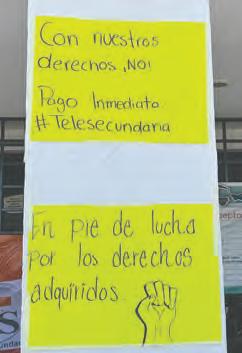 Con nuestros
derechos ¡NO!
Pago Inmediato
#Telesecundaria
En pie de lucha
por los derechos
adquiridos